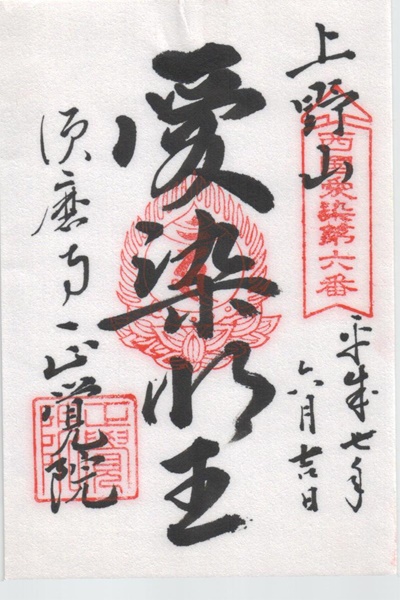 上野山
西國愛染第六番
平成七年
六月吉日
愛染明王
須磨寺正覚院